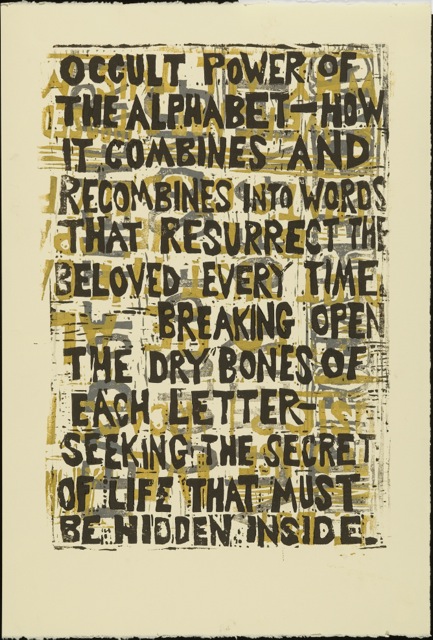 OCCULT POWER OF
THE ALPHABET—HOW
IT COMBINES AND
RECOMBINES INTO WORDS
THAT RESURRECT THE
BELOVED EVERY TIME.
BREAKING OPEN
THE DRY BONES OF
EACH LETTER—
SEEKING THE SECRET
OF LIFE THAT MUST
BE HIDDEN INSIDE.